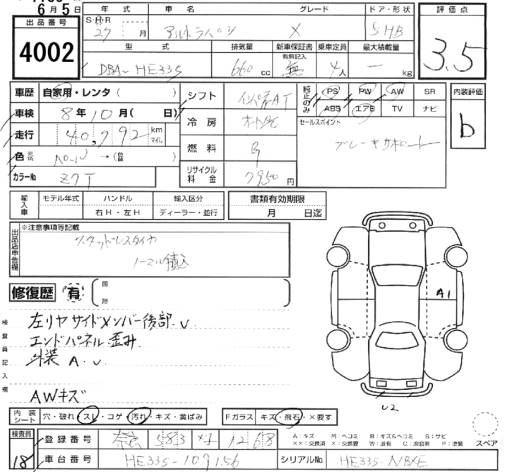 6月5日
年式 車名 グレード ドア・形状 評価点
出品番号
S・H・R 27 月 アルトラパン X 5HB 3.5
4002
型式 排気量 新車保証書 乗車定員 最大積載量
有無記入
DBA-HE33S 660 cc 無 4人 kg
車歴 自家用・レンタ ( ) シフト インパネAT 純正のみ PS PW AW SR 内装評価
車検 8年10月( 日) ABS エアB TV ナビ
冷房 オートAC セールスポイント b
走行 40,792 km マイル ブレーキサポート
燃料 G
色
カラーNo Z7T リサイクル料金 7950円
輸入車 モデル年式 ハンドル 輸入区分 書類有効期限
右H・左H ディーラー・並行 月 日迄
出品店申告欄 ※注意事項等記載
スタッドレスタイヤ
ノーマル積込
修復歴 有
検査員記入欄
左リヤサイドメンバー後部.U
エンドパネル歪み
外装 A.U
AWキズ
A1
U2
内装シート 穴・破れ・スレ・コゲ・汚れ・キズ・黄ばみ Fガラス キズ・飛石・×要す
検査員 登録番号 583 1268
18 車台番号 HE33S-109156 シリアルNo. HE33S-NBXE
スペア